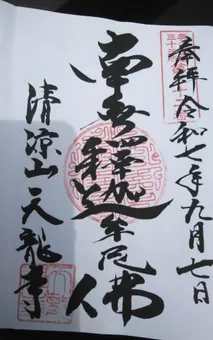 奉拝 令和七年九月七日
南無釋迦牟尼佛
清涼山 天龍寺